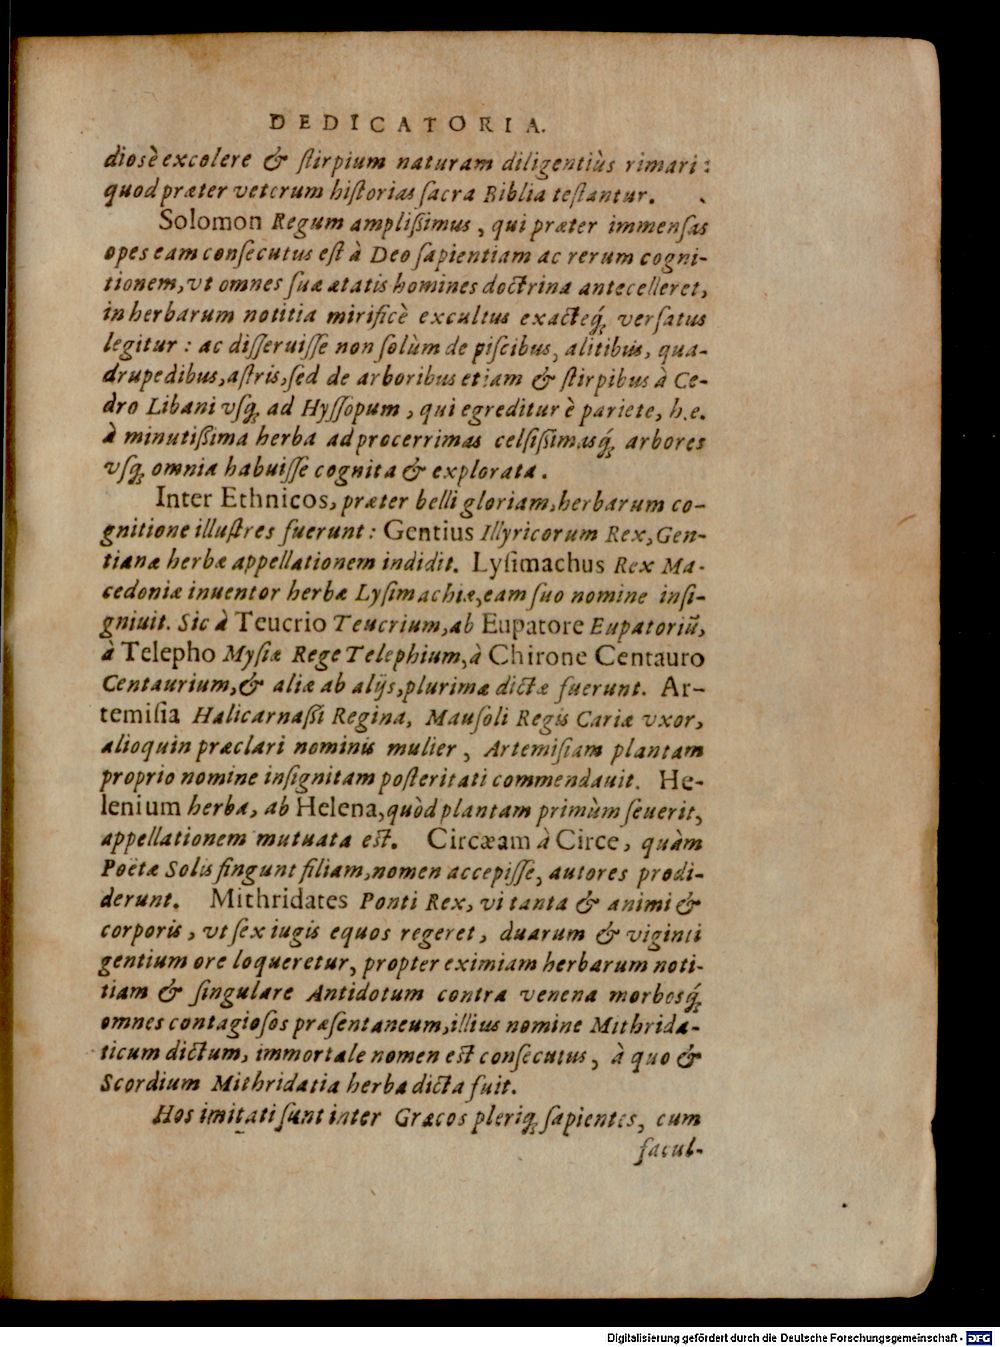 DEDICATORIA.
diosè excolere & ſtirpium naturam diligentiùs rimari:
quod præter veterum hiſtorias ſacra Biblia teſtantur.
Solomon Regum ampliſsimus, qui præter immenſas
opes eam conſecutus eſt à Deo ſapientiam ac rerum cogni-
tionem, vt omnes ſuæ ætatis homines doctrina antecelleret,
in herbarum notitia mirificè excultus exacteq́; verſatus
legitur: ac diſſeruiſſe non ſolùm de piſcibus, alitibus, qua-
drupedibus, aſtris, ſed de arboribus etiam & ſtirpibus à Ce-
dro Libani vſq; ad Hyſſopum, qui egreditur è pariete, h.e.
à minutiſsima herba ad procerrimas celſiſsimasq́; arbores
vſq; omnia habuiſſe cognita & explorata.
Inter Ethnicos, præter belli gloriam, herbarum co-
gnitione illuſtres fuerunt: Gentius Illyricorum Rex, Gen-
tianæ herbæ appellationem indidit. Lyſimachus Rex Ma-
cedoniæ inuentor herbæ Lyſimachiæ, eam ſuo nomine inſi-
gniuit. Sic à Teucrio Teucrium, ab Eupatore Eupatoriũ,
à Telepho Myſiæ Rege Telephium, à Chirone Centauro
Centaurium, & aliæ ab alijs, plurimæ dictæ fuerunt. Ar-
temiſia Halicarnaſsi Regina, Mauſoli Regis Cariæ vxor,
alioquin præclari nominis mulier, Artemiſiam plantam
proprio nomine inſignitam poſteritati commendauit. He-
lenium herba, ab Helena, quòd plantam primùm ſeuerit,
appellationem mutuata eſt. Circæam à Circe, quàm
Poëtæ Solis fingunt filiam, nomen accepiſſe, autores prodi-
derunt. Mithridates Ponti Rex, vi tanta & animi &
corporis, vt ſex iugis equos regeret, duarum & viginti
gentium ore loqueretur, propter eximiam herbarum noti-
tiam & ſingulare Antidotum contra venena morbosq́;
omnes contagioſos præſentaneum, illius nomine Mithrida-
ticum dictum, immortale nomen eſt conſecutus, à quo &
Scordium Mithridatia herba dicta fuit.
Hos imitati ſunt inter Græcos pleriq; ſapientes, cum
facul-
Digitalisierung gefördert durch die Deutsche Forschungsgemeinschaft - DFG